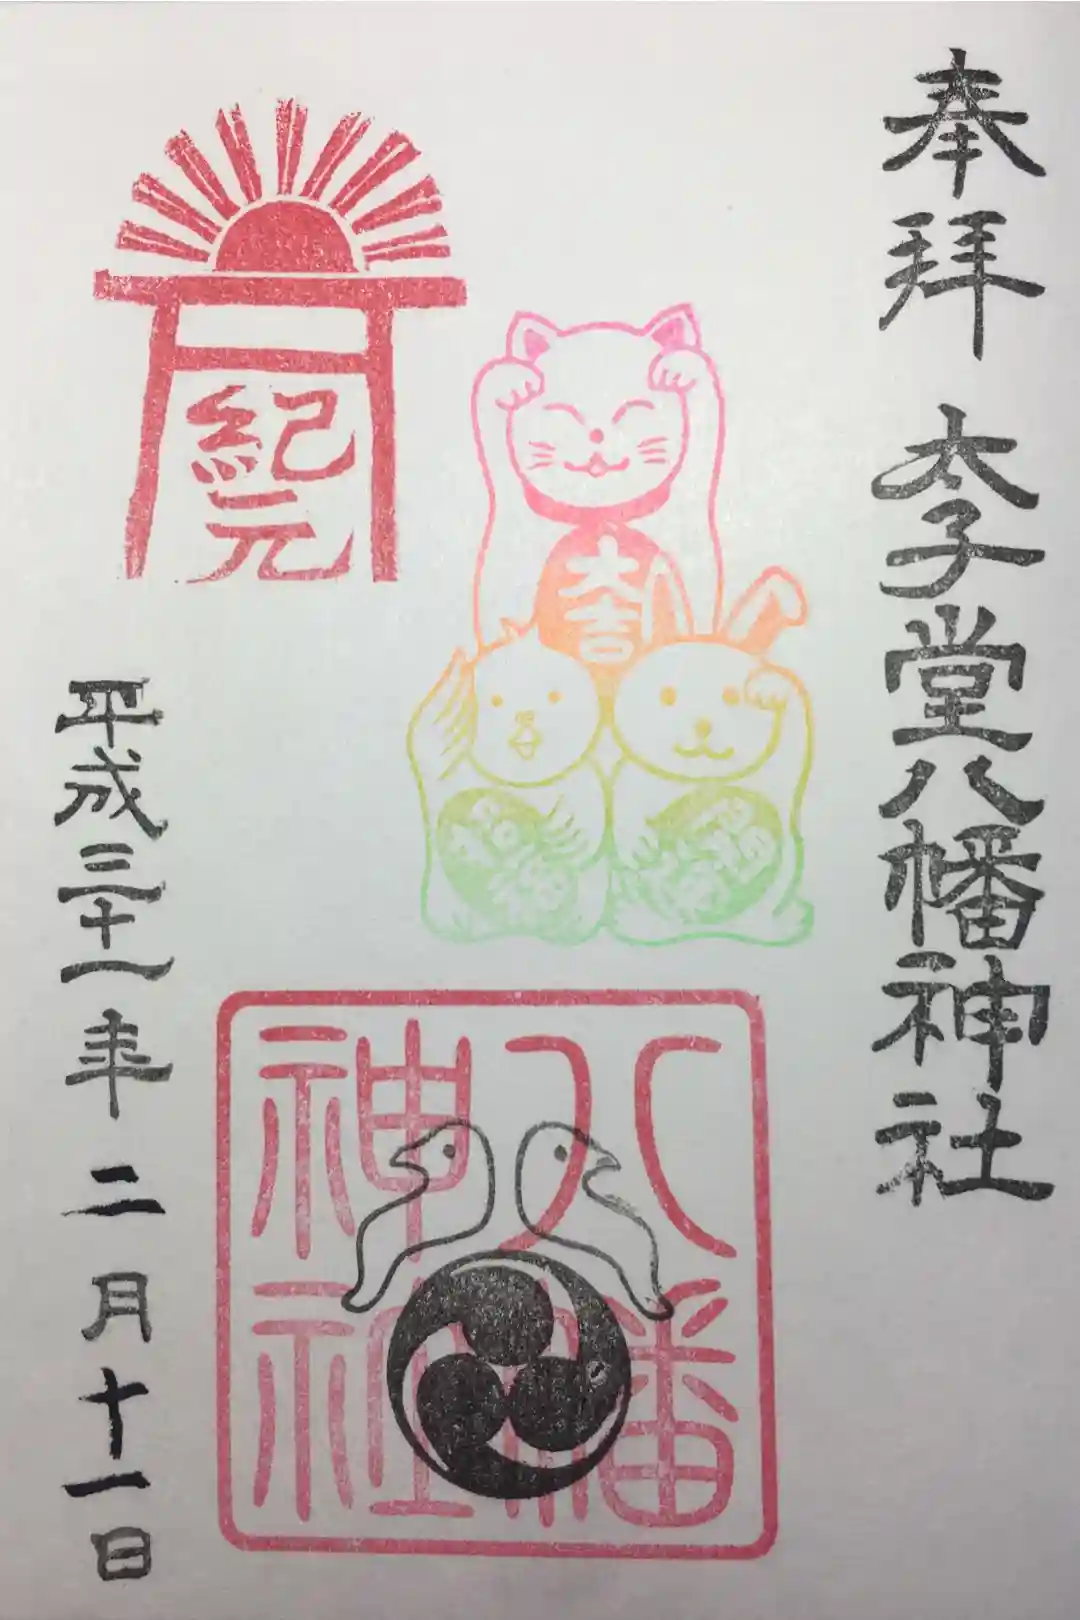 奉拝 太子堂八幡神社
大吉
紀元
八幡
神社
平成三十一年二月十一日